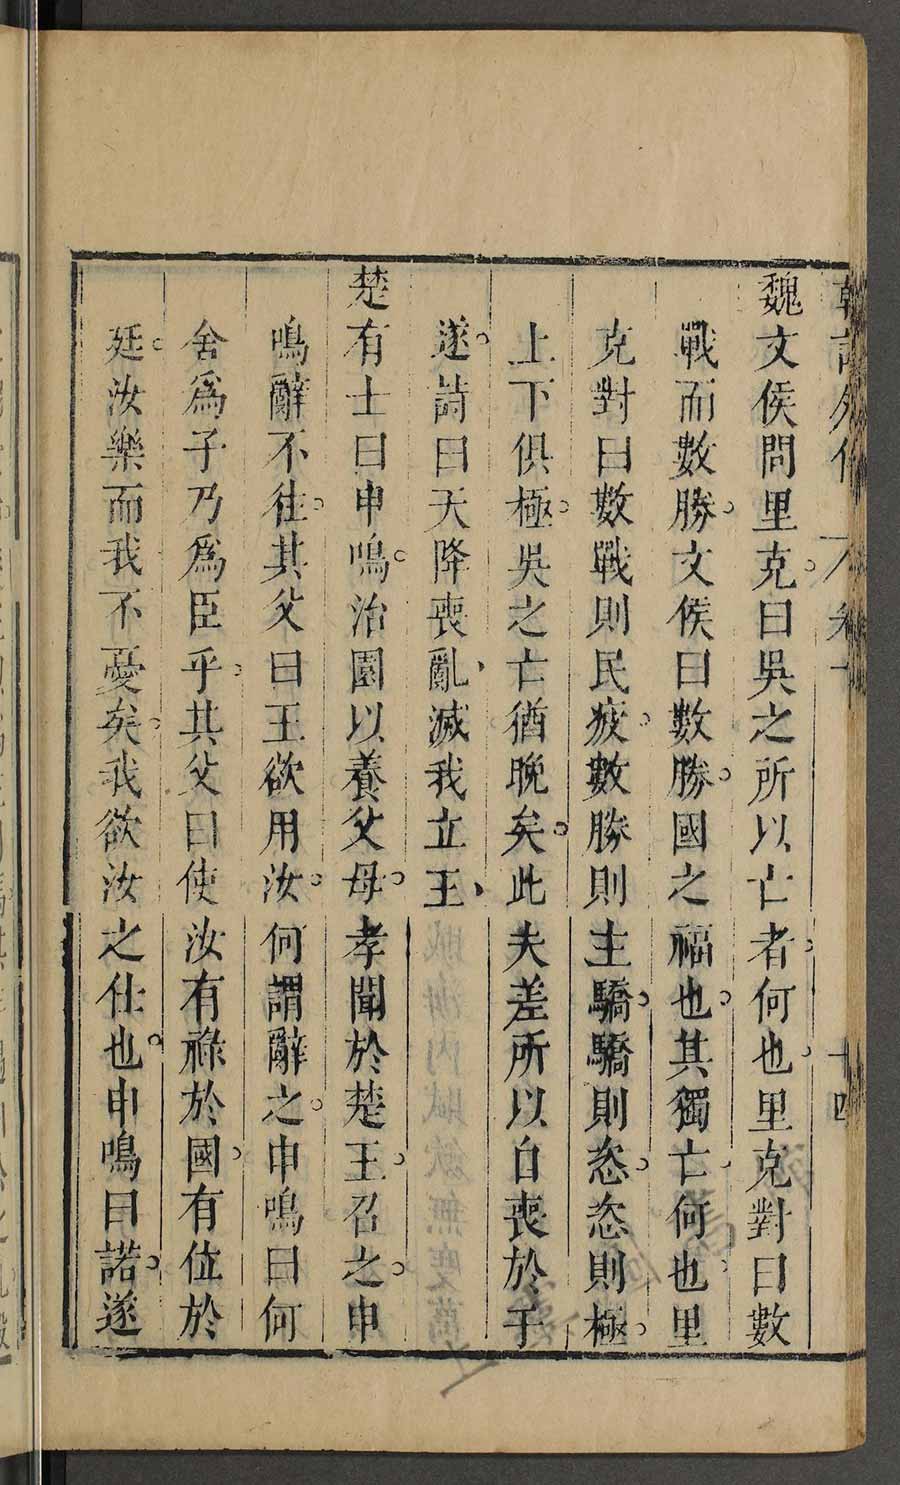 韓詩外傳 卷十 十四
魏文侯問里克曰吳之所以亡者何也里克對曰數
戰而數勝文侯曰數勝國之福也其獨亡何也里
克對曰數戰則民疲數勝則主驕驕則恣恣則極
上下俱極吳之亡猶晚矣此夫差所以自喪於干
遂詩曰天降喪亂滅我立王
楚有士曰申鳴治園以養父母孝聞於楚王召之申
鳴辭不往其父曰王欲用汝何謂辭之申鳴曰何
舍爲子乃爲臣乎其父曰使汝有祿於國有位於
廷汝樂而我不憂矣我欲汝之仕也申鳴曰諾遂